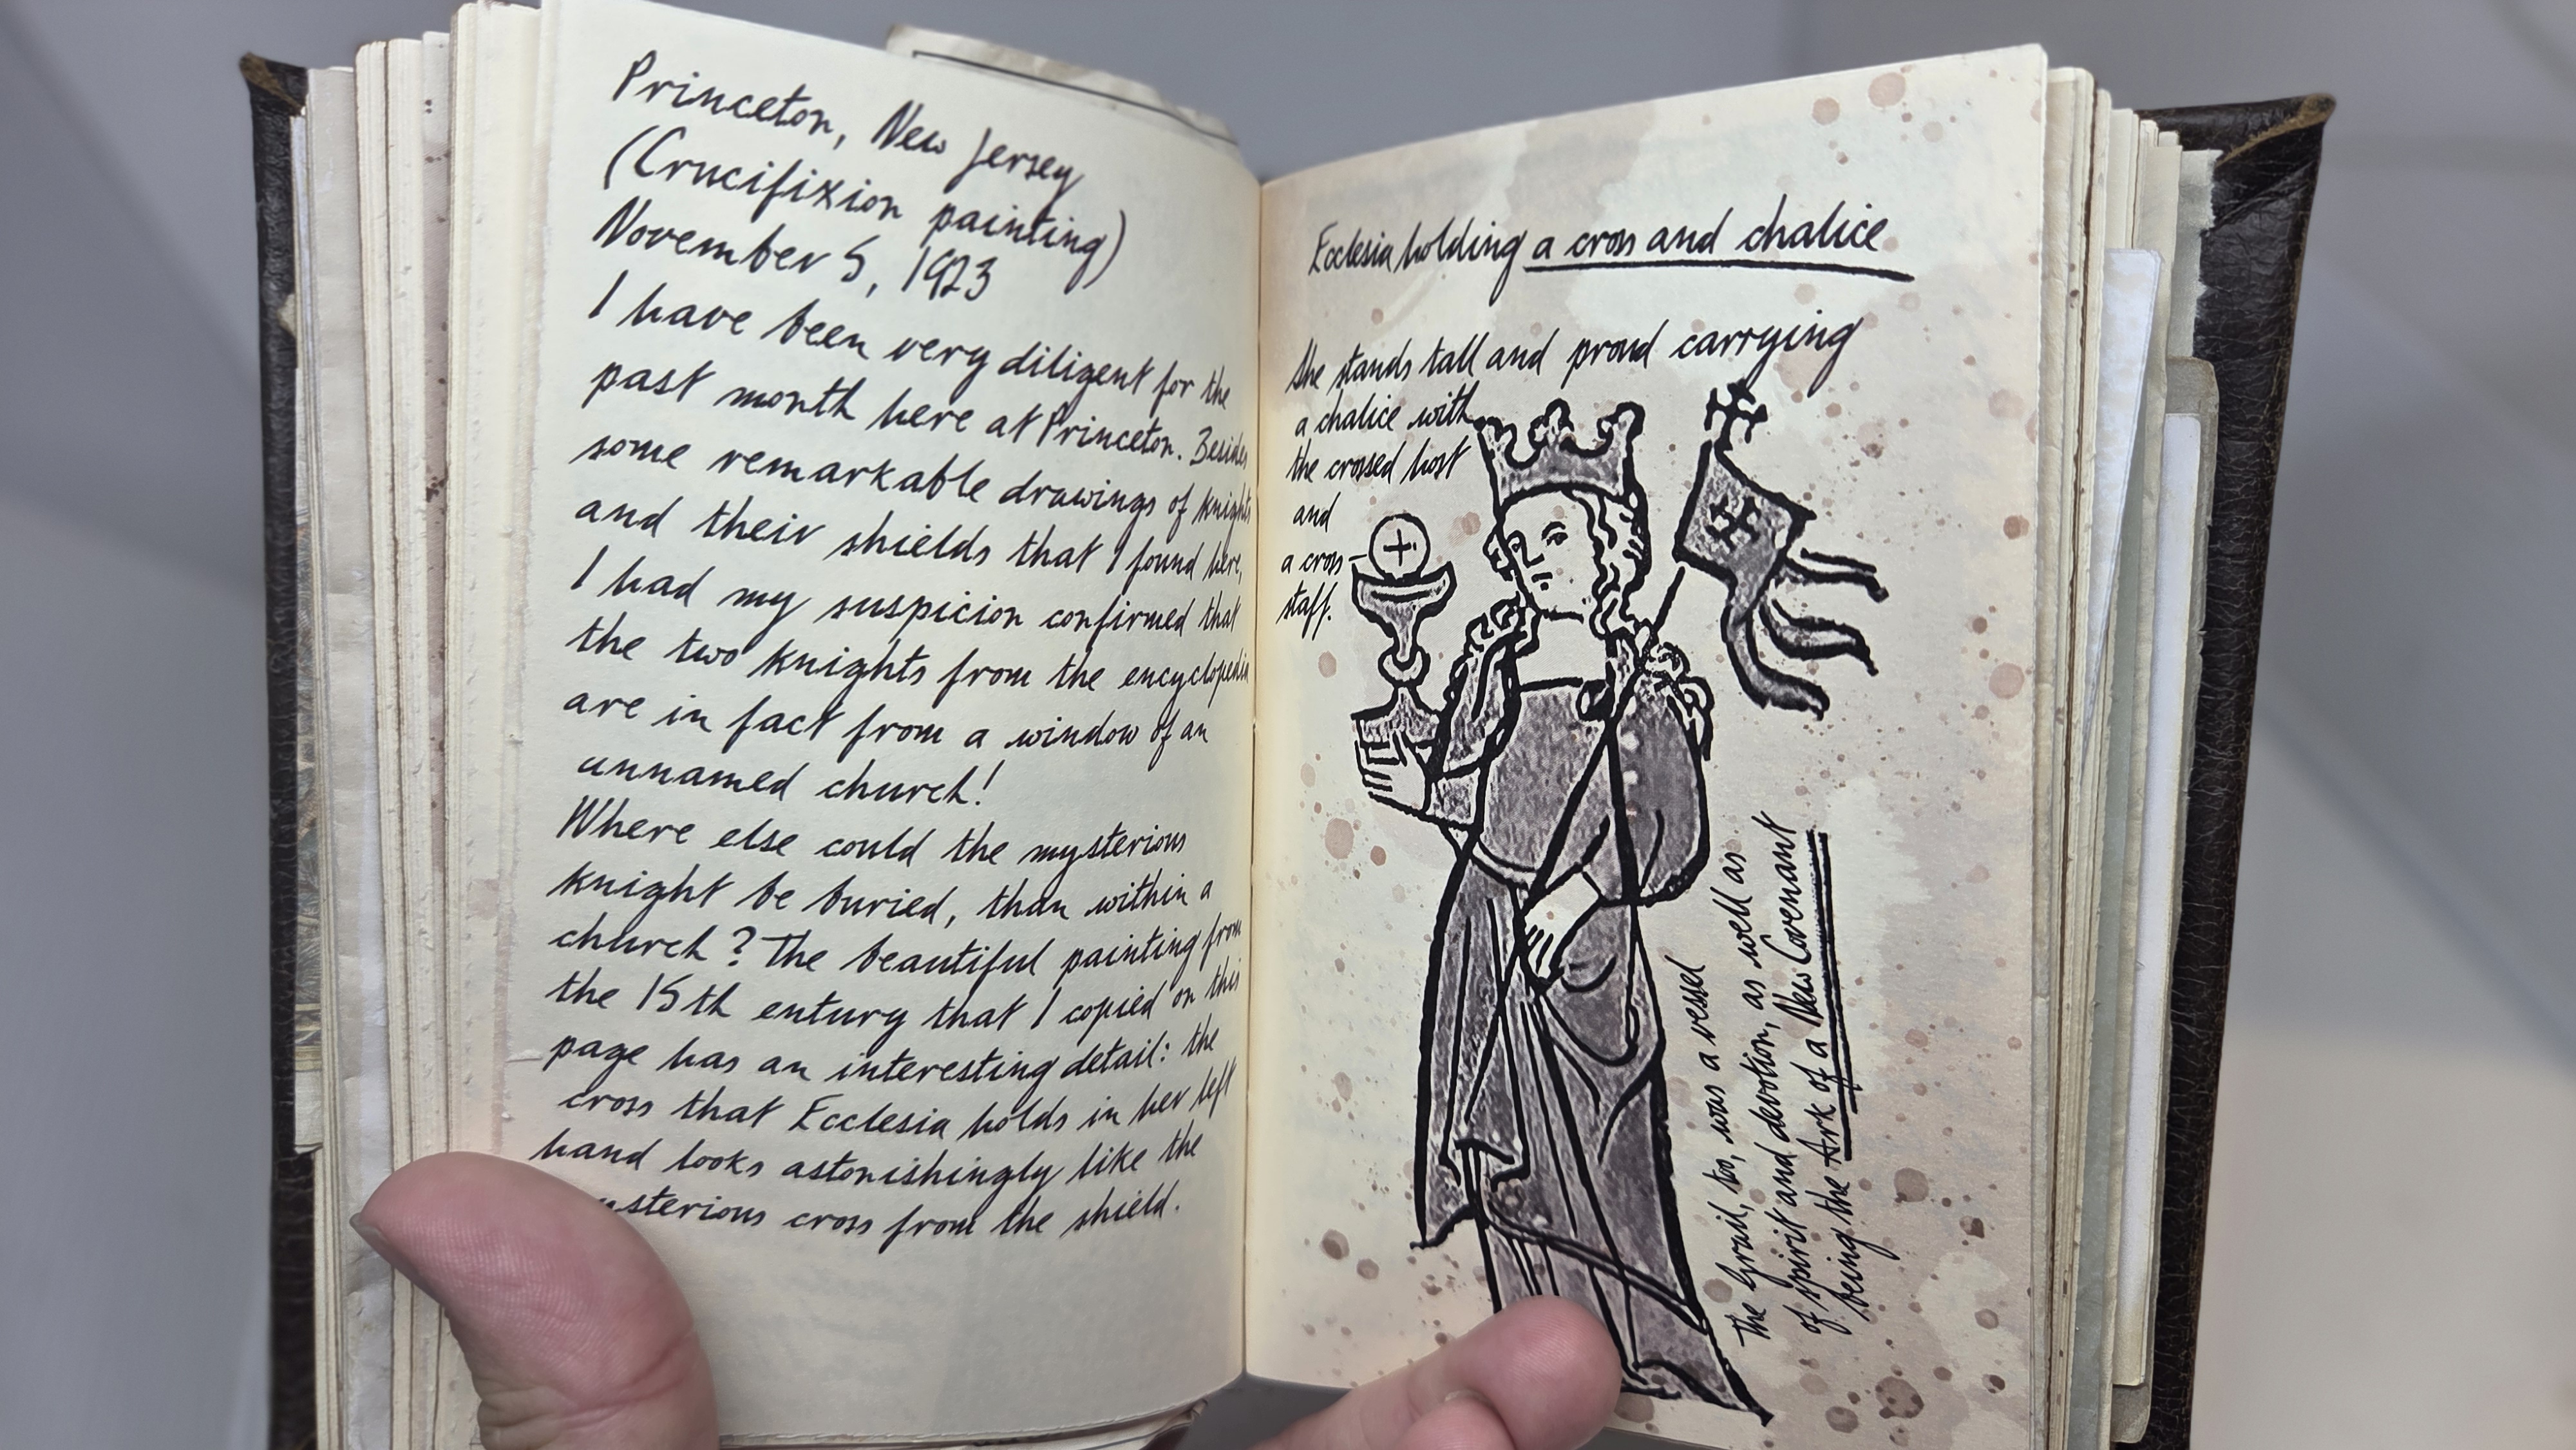 Princeton, New Jersey
(Crucifixion painting)
November 5, 1923
I have been very diligent for the
past month here at Princeton. Besides
some remarkable drawings of knights
and their shields that I found here,
I had my suspicion confirmed that
the two knights from the encyclopedia
are in fact from a window of an
unnamed church!
Where else could the mysterious
knight be buried, than within a
church? The beautiful painting from
the 15th entury that I copied on this
page has an interesting detail: the
cross that Ecclesia holds in her left
hand looks astonishingly like the
cross from the shield.
Ecclesia holding a cross and chalice
She stands tall and proud carrying
a chalice with
the crossed host
and
a cross
staff.
The Grail, too, was a vessel
of spirit and devotion, as well as
being the Ark of a New Covenant